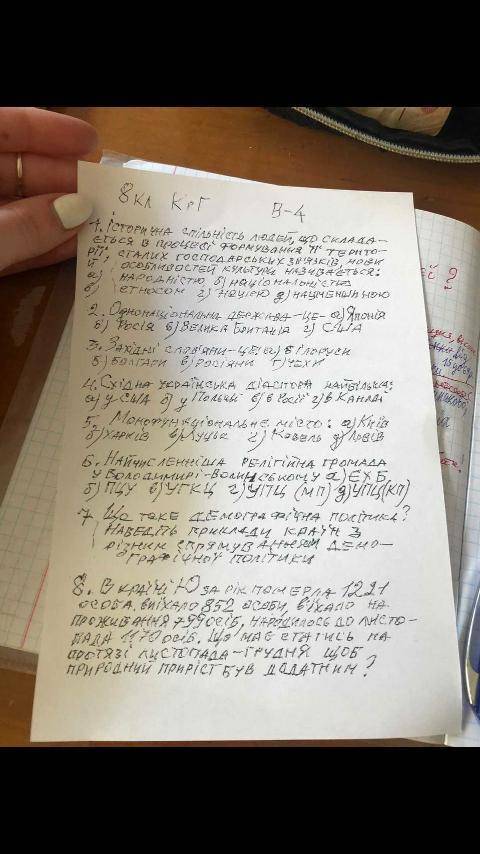 8 кл КрГ В-4
1. Історична спільність людей, що склада-
ється в процесі формування її терито-
рії, сталих господарських зв'язків, мови
й особливостей культури називається:
а) народністю б) національністю
в) етносом г) нацією д) нацменшиною
2. Однонаціональна держава-це- а) Японія
б) Росія в) Велика Британія г) США
3. Західні слов'яни-це: а) Білоруси
б) Болгари в) Росіяни г) Чехи
4. Східна українська діаспора найбільша:
а) у США б) у Польщі в) в Росії г) в Канаді
5. Монофункціональне місто: а) Київ
б) Харків в) Луцьк г) Ковель д) Львів
6. Найчисленніша релігійна громада
у Володимирі-Волинському а) ЕХБ
б) ПЦУ в) УГКЦ г) УПЦ (МП) д) УПЦ (КП)
7 Що таке демографічна політика?
Наведіть приклади країн з
різним спрямуванням демо-
графічної політики
8. В країні Ю за рік померла 1221
особа, виїхало 852 особи, в'їхало на
проживання 799 осіб, народилось до листо-
пада 1170 осіб. Що має статись на
протязі листопада-грудня щоб
природний приріст був додатним?